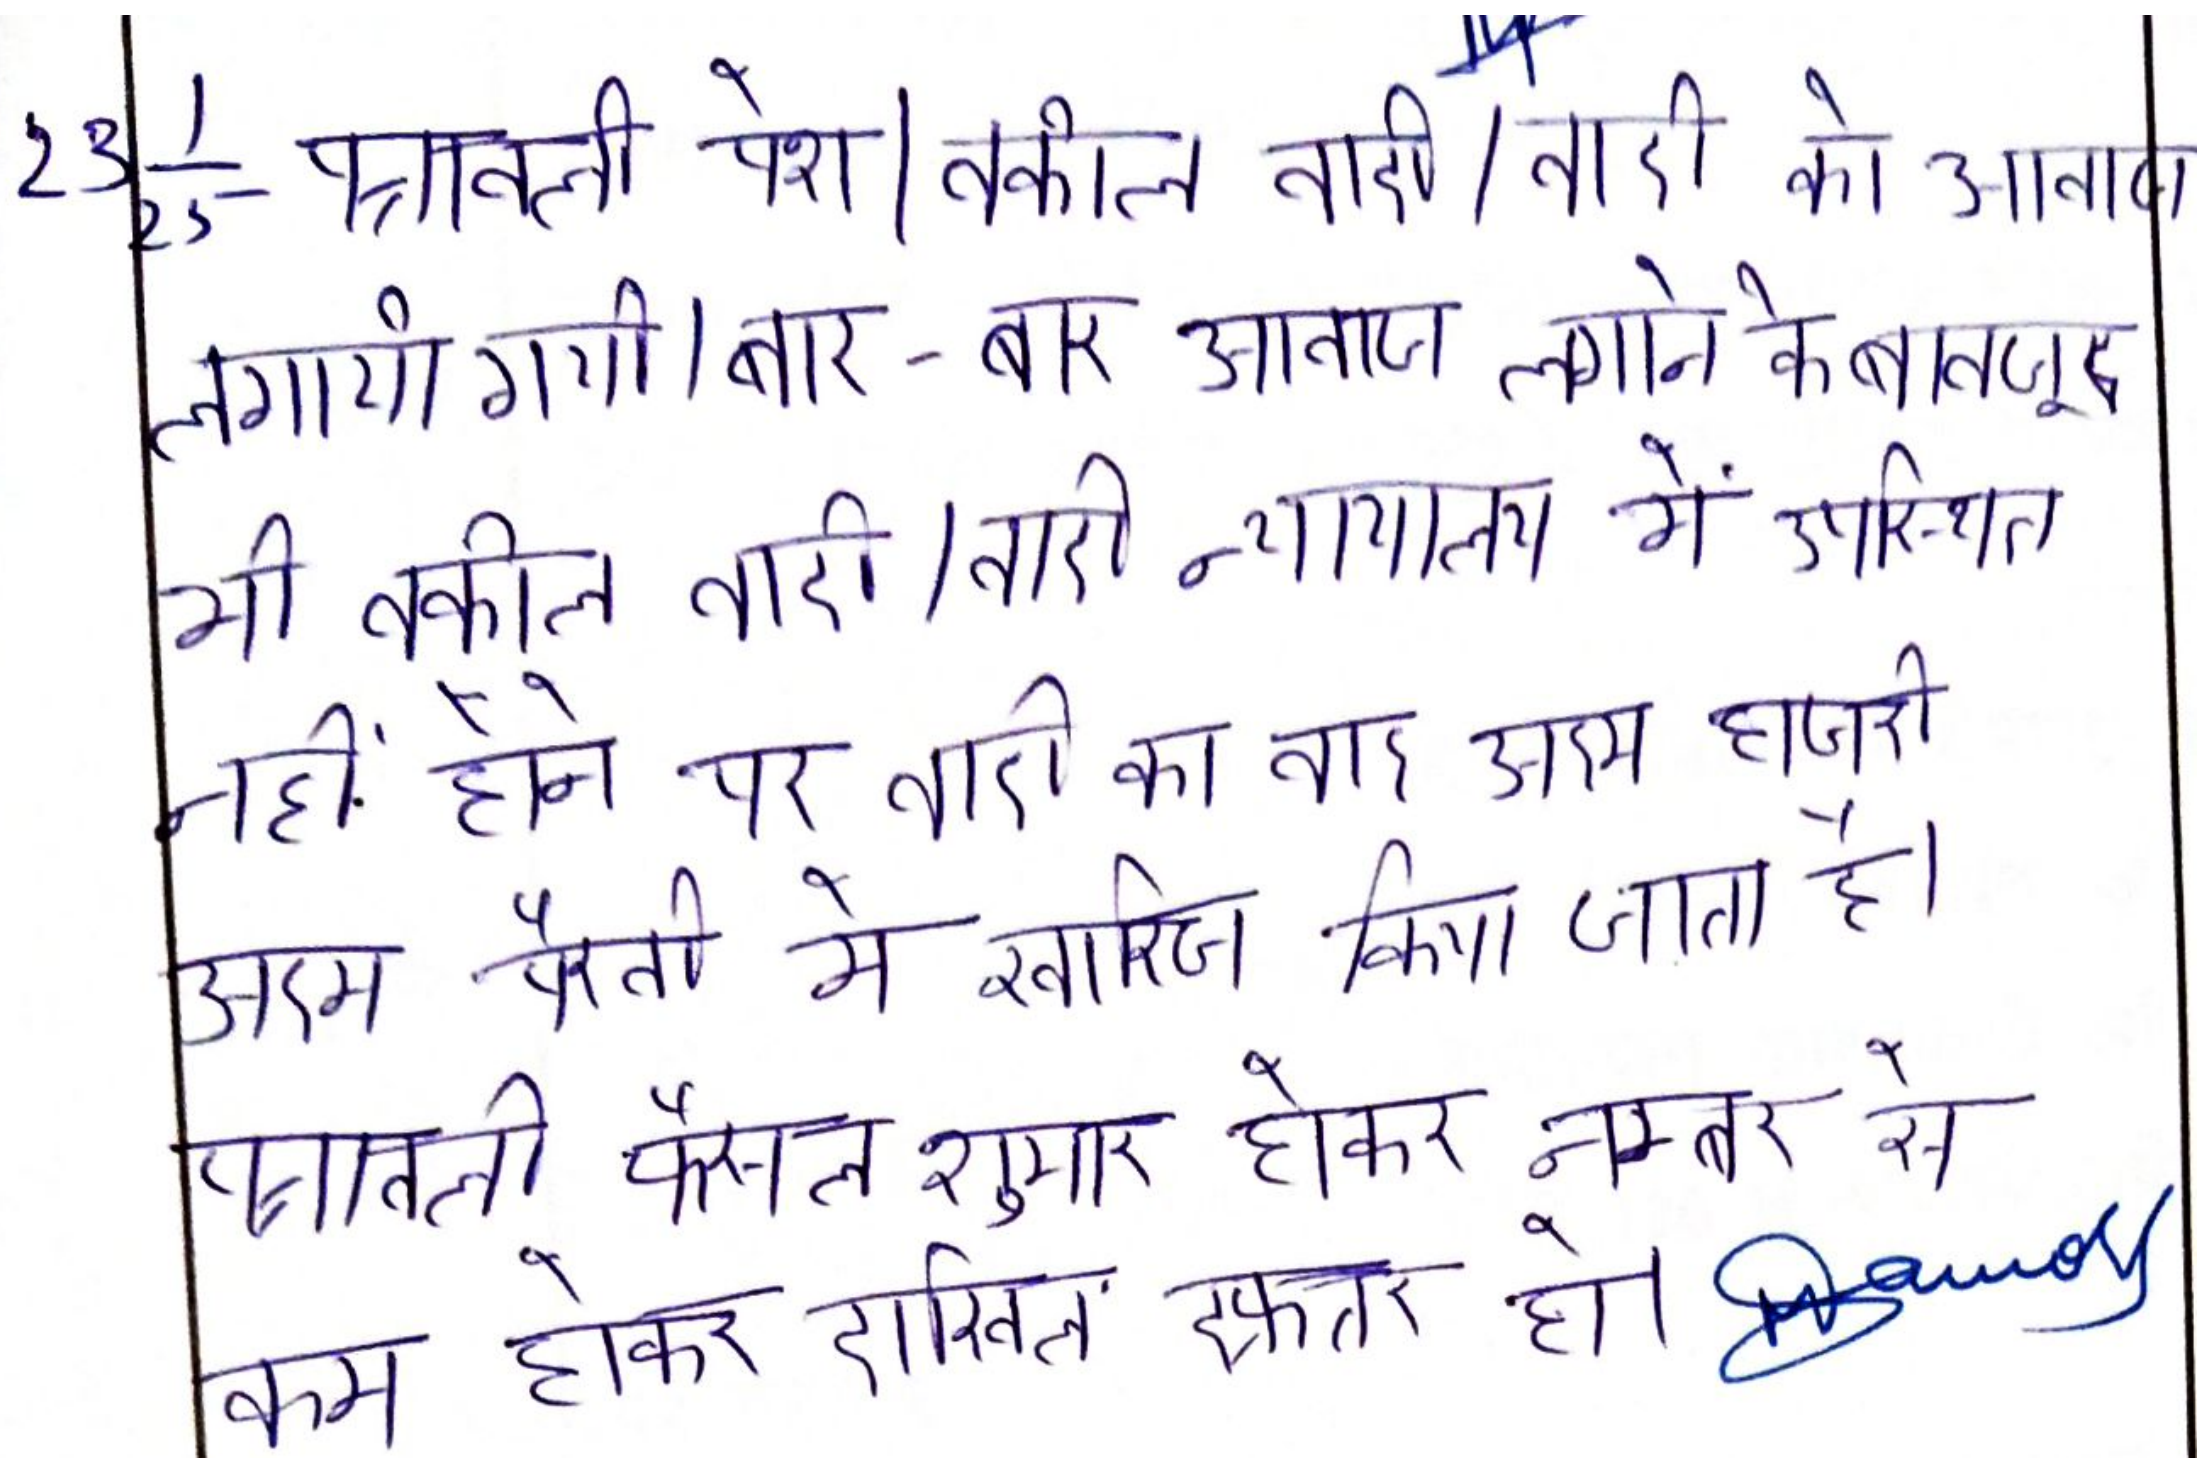 23/1/25 पत्रावली पेश। वकील वादी/वादी को आवाज
लगायी गयी। बार-बार आवाज लगाने के बावजूद
भी वकील वादी/वादी न्यायालय में उपस्थित
नहीं होने पर वादी का वाद अदम हाजरी
अदम पैरवी मे खारिज किया जाता है।
पत्रावली फैसल शुमार होकर नम्बर से
कम होकर दाखिल दफ्तर हो।